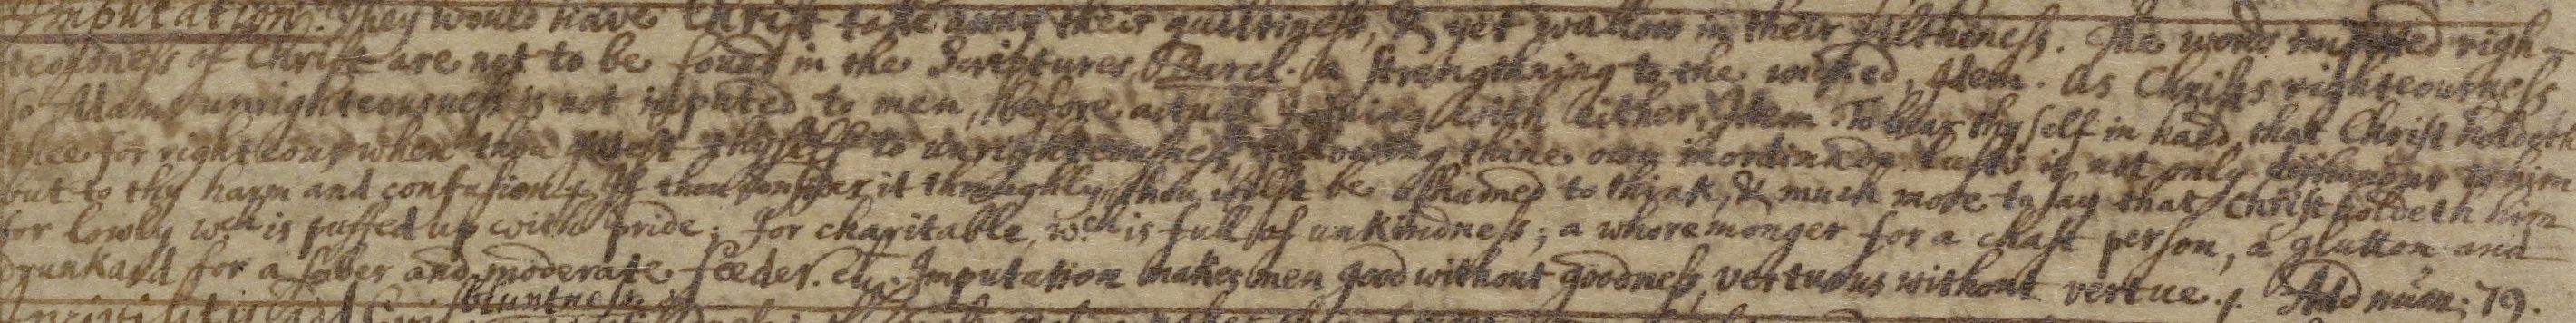 Imputation. They would have Christ take away their guiltiness, & yet wallow in their filthiness. The words imputed righ-
teousness of Christ are not to be found in the Scriptures Barcl. a strengthning to the wicked, Idem. As Christs righteousness
so Adams unrighteousness is not imputed to men, before actual joyning with either, Idem. To bear thy self in hand, that Christ holdeth
thee for righteous, when thou thyself to unrighteousness, following thine own inordinade lusts is not only dishonour to him
but to thy harm and confusion. If thou consider it throughly, thou wilst be ashamed to think, & much more to say that Christ holdeth him
for lowly wch is puffed up with pride; for charitable, wch is full of unkindness; a whoremonger for a chast person, a glutton and
drunkard for a sober and moderate feeder. Imputation makes men good without goodness, vertuous without vertue. Add num: 79.
bluntness